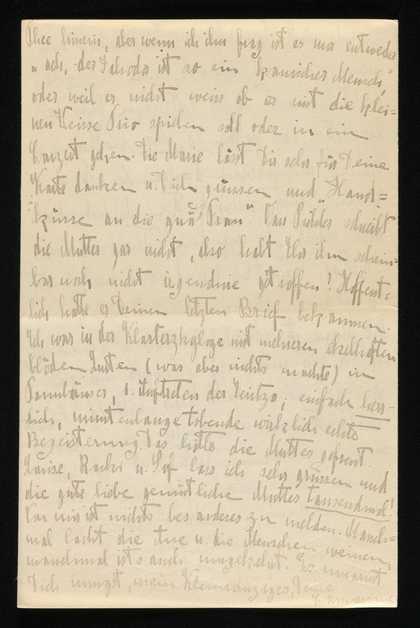 Thee hinein, aber wenn ich ihn frag ist es ma entweder
"ach, der Jahoda ist so ein komischer Mensch",
oder weil er nicht weiss ob er mit die klei=
nen Weisse Trio spielen soll oder in ein
Conzert gehen. Die Marie lässt Dir sehr für Deine
Karte danken u. Dich grüssen und "Hand=
küsse an die gnä' Frau" Van schreibt
die Mutter gar nicht, also habt Ihr ihn schein=
bar noch nicht irgendwie getroffen? Hoffent=
lich hatte er Deinen letzten Brief bekommen.
Ich war in der mit mehreren ekelhaften
blöden Leuten (was aber nichts machte) in
Tannhäuser, 1. Auftreten der ; einfach herr=
lich, minutenlange tobende wirklich echte
Begeisterung! Das hätte die Mutter gefreut.
Luise, u. lass ich sehr grüssen und
die gute liebe gemütliche Mutter tausendmal!
Von mir ist nichts besonderes zu melden. Manch=
mal lacht die u. die Menschen weinen
manchmal ist's auch umgekehrt. Es umarmt
Dich innigst, mein Deine